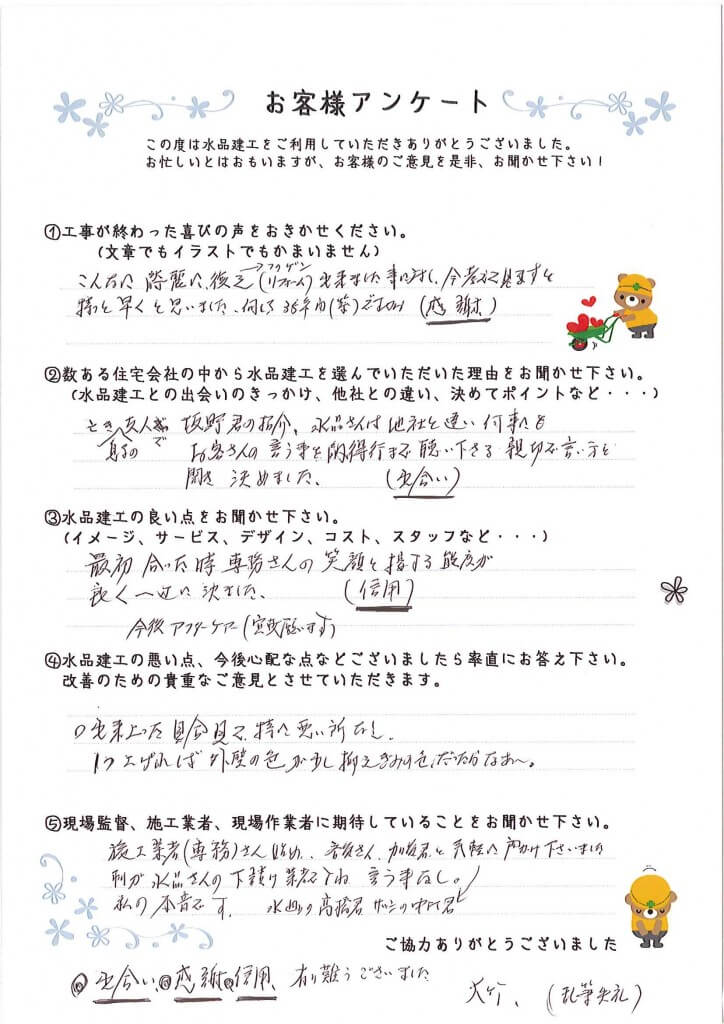 お客様アンケート
この度は水品建工をご利用していただきありがとうございました。
お忙しいとはおもいますが、お客様のご意見を是非、お聞かせ下さい！
①工事が終わった喜びの声をおきかせください。
(文章でもイラストでもかまいません)
こんなに 綺麗に (リフォーム) 出来ました事に対し、今考えて見ますと
もっと早くと思いました、何しろ 35年 (築) (感謝)
②数ある住宅会社の中から水品建工を選んでいただいた理由をお聞かせ下さい。
(水品建工との出会いのきっかけ、他社との違い、決めてポイントなど・・・)
友人 で 坂野君の紹介、水品さんは他社と違い 何事にも
お客さんの 言う事を納得行まで 聴い下さる 親切で言い方を
聞き 決めました、 (出合い)
③水品建工の良い点をお聞かせ下さい。
(イメージ、サービス、デザイン、コスト、スタッフなど・・・)
最初 合った時 専務さんの 笑顔と接する 態度が
良く 一辺に 決ました、 (信用)
今後 アフターケアー
④水品建工の悪い点、今後心配な点などございましたら率直にお答え下さい。
改善のための貴重なご意見とさせていただきます。
出来上った 具合見て、特に 悪い所なし、
1つ 上げれば 外壁の色が少し 抑えぎみの色だったかなあ〜。
⑤現場監督、施工業者、現場作業者に期待していることをお聞かせ下さい。
施工業者(専務)さん始め、 気軽に 声かけ下さいました
水品さんの 下請け業者ですね 言う事なし。
私の 本音です。 水廻りの高橋君
ご協力ありがとうございました
出合い、感謝、信用、 有り難うございました
大竹、 (乱筆失礼)